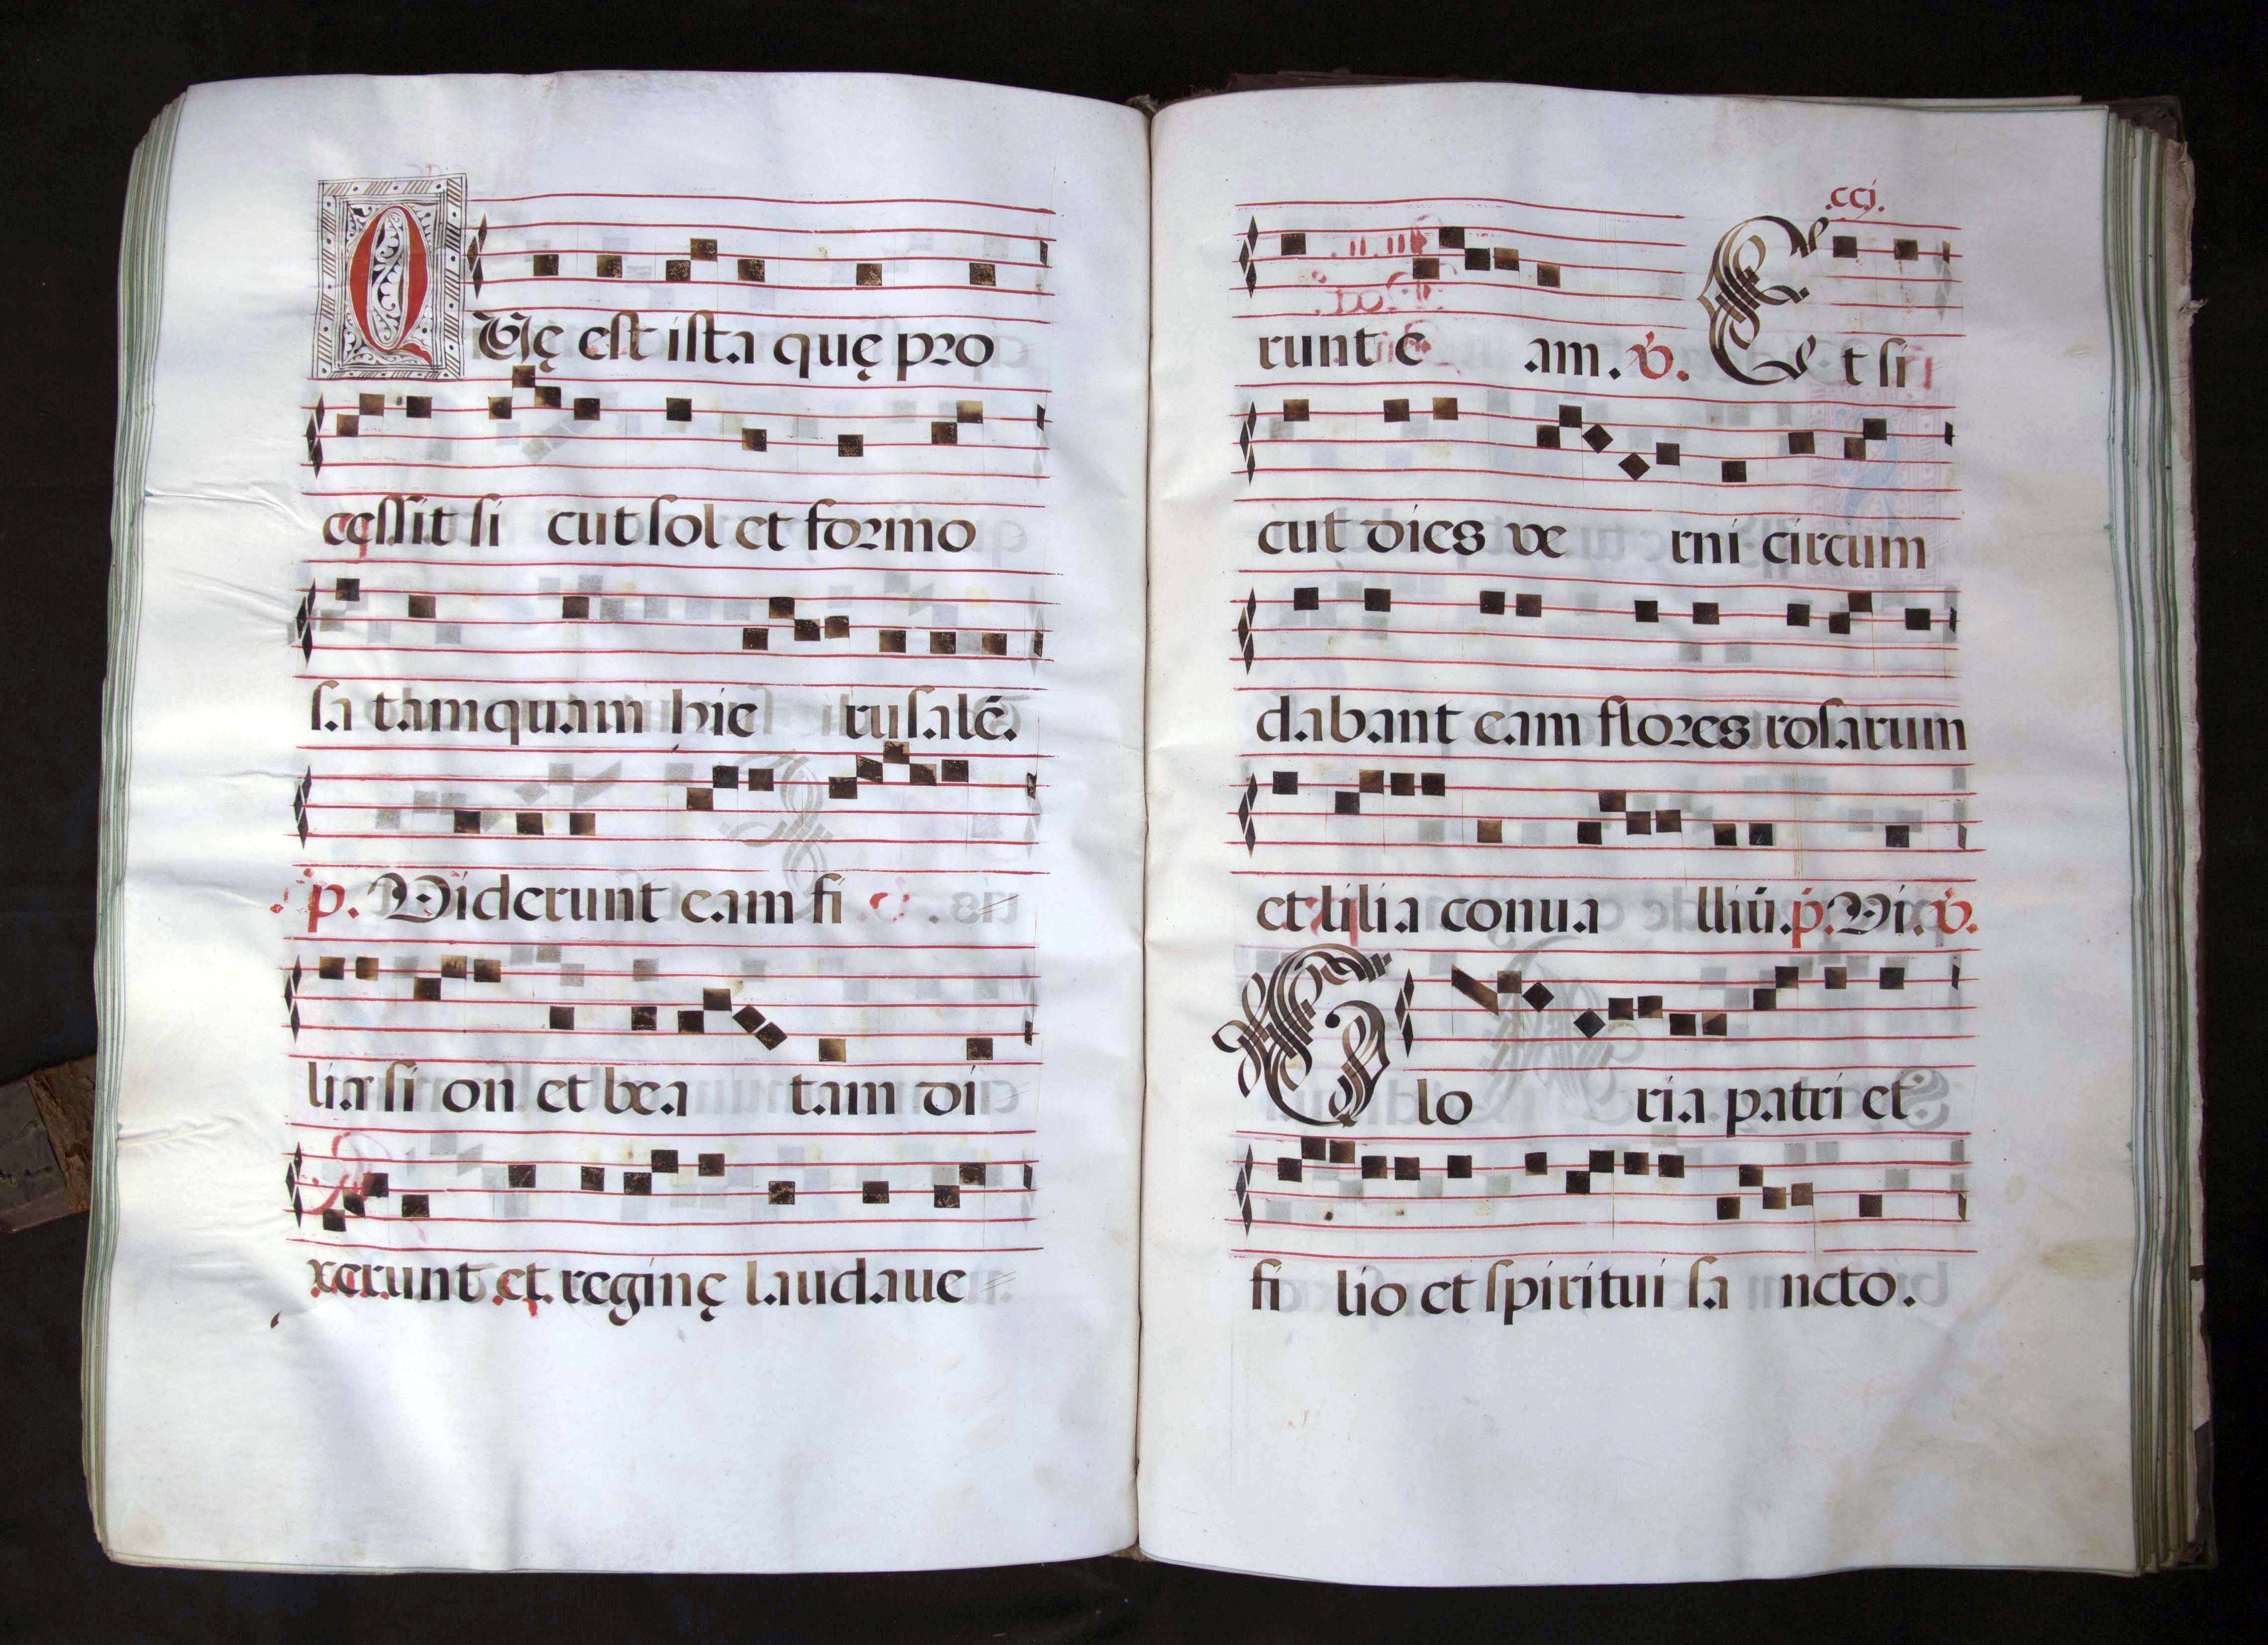 QUę est ista quę pro
cęssit si cut sol et formo
sa tamquam hie rusalē.
p. Viderunt eam fi
liȩ si on et bea tam di
xerunt et reginę laudaue
.ccj.
runt e am. v. Et si
cut dies ve rni circum
dabant eam flores rosarum
et lilia conua lliū. p. Vi. v.
Glo ria patri et
fi lio et spiritui sa ncto.